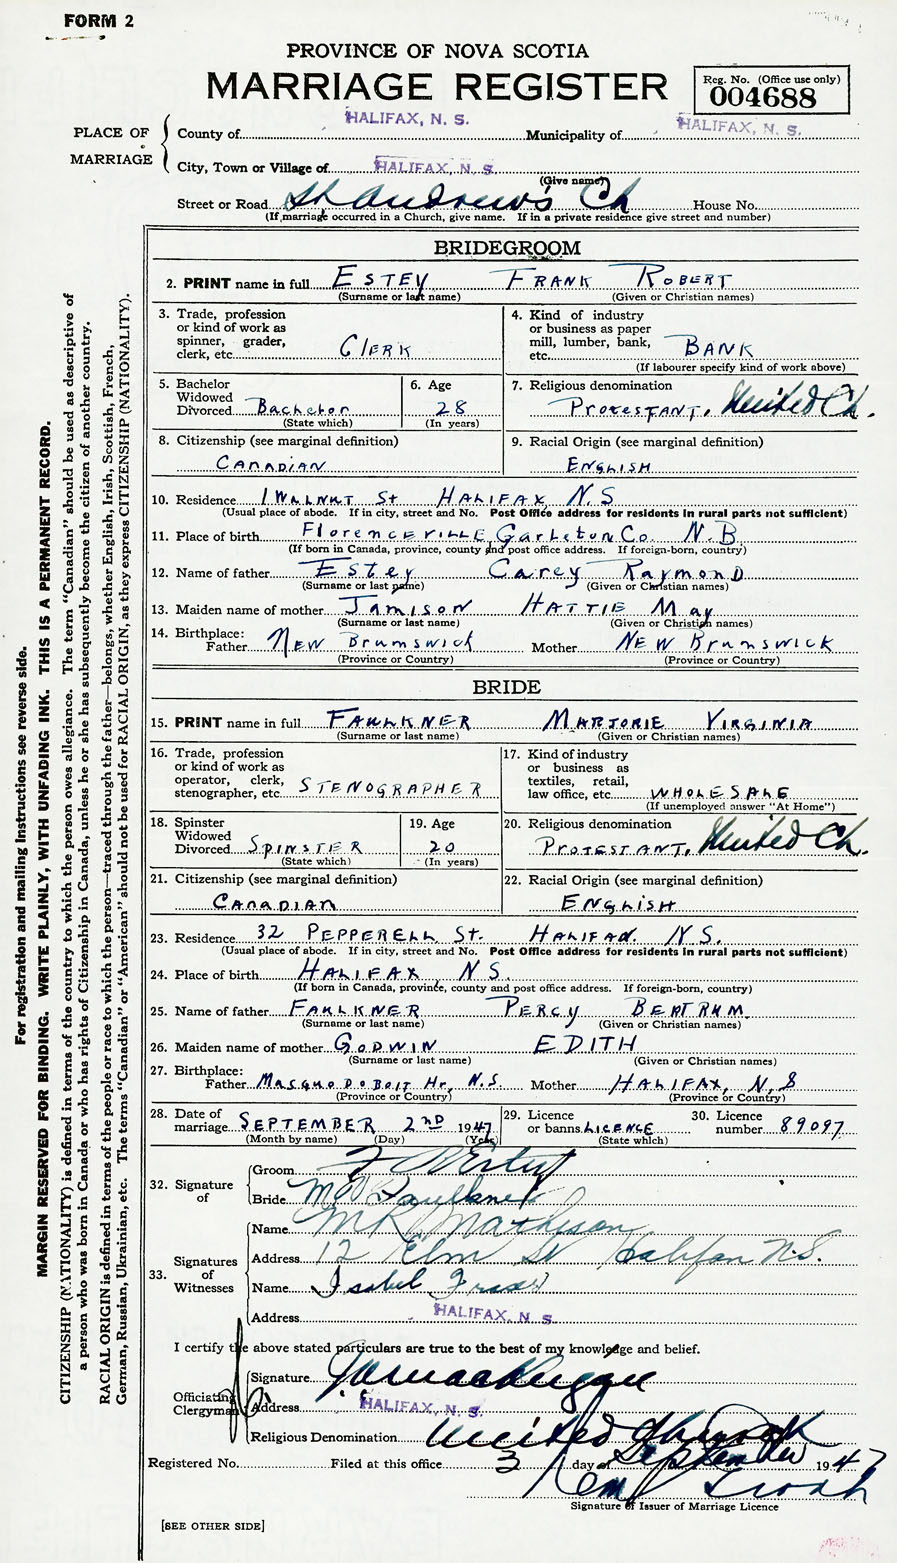 FORM 2
PROVINCE OF NOVA SCOTIA
MARRIAGE REGISTER
Reg. No. (Office use only)
004688
PLACE OF MARRIAGE
County of HALIFAX, N. S. Municipality of HALIFAX, N. S.
City, Town or Village of HALIFAX, N. S.
(Give name)
Street or Road St Andrew's Ch House No.
(If marriage occurred in a Church, give name. If in a private residence give street and number)
BRIDEGROOM
2. PRINT name in full ESTEY FRANK ROBERT
(Surname or last name) (Given or Christian names)
3. Trade, profession or kind of work as spinner, grader, clerk, etc. ClERK
4. Kind of industry or business as paper mill, lumber, bank, etc. BANK
(If labourer specify kind of work above)
5. Bachelor Widowed Divorced Bachelor
(State which)
6. Age 28
(In years)
7. Religious denomination PROTESTANT. United Ch.
8. Citizenship (see marginal definition) CANADIAN
9. Racial Origin (see marginal definition) ENGLISH
10. Residence 1 WALNUT St HALIFAX, N.S
(Usual place of abode. If in city, street and No. Post Office address for residents in rural parts not sufficient)
11. Place of birth FlorenceVILLE, Carleton Co. N.B
(If born in Canada, province, county and post office address. If foreign-born, country)
12. Name of father Estey Carey Raymond
(Surname or last name) (Given or Christian names)
13. Maiden name of mother JAMISON HATTIE May
(Surname or last name) (Given or Christian names)
14. Birthplace:
Father NEW Brunswick Mother NEW BRUNSWICK
(Province or Country) (Province or Country)
BRIDE
15. PRINT name in full FAULKNER MARJORIE VIRGINIA
(Surname or last name) (Given or Christian names)
16. Trade, profession or kind of work as operator, clerk, stenographer, etc. STENOGRAPHER
17. Kind of industry or business as textiles, retail, law office, etc. WHOLESALE
(If unemployed answer "At Home")
18. Spinster Widowed Divorced SPINSTER
(State which)
19. Age 20
(In years)
20. Religious denomination PROTESTANT. United Ch.
21. Citizenship (see marginal definition) CANADIAN
22. Racial Origin (see marginal definition) ENGLISH
23. Residence 32 PEPPERELL St. HALIFAX. N.S.
(Usual place of abode. If in city, street and No. Post Office address for residents in rural parts not sufficient)
24. Place of birth HALIFAX N.S.
(If born in Canada, province, county and post office address. If foreign-born, country)
25. Name of father FAULKNER PERCY BERTRUM
(Surname or last name) (Given or Christian names)
26. Maiden name of mother GODWIN EDITH
(Surname or last name) (Given or Christian names)
27. Birthplace:
Father MASQUODOBOIT Hr, N.S. Mother HALIFAX, N, S
(Province or Country) (Province or Country)
28. Date of marriage SEPTEMBER 2ND 1947
(Month by name) (Day) (Year)
29. Licence or banns LICENCE
(State which)
30. Licence number 89097
32. Signature of
Groom F R Estey
Bride M V Faulkner
33. Signatures of Witnesses
Name M R Matheson
Address 12 Elm St Halifax N.S.
Name Isabel Fraser
Address HALIFAX, N. S.
I certify the above stated particulars are true to the best of my knowledge and belief.
Officiating Clergyman
Signature
Address HALIFAX, N. S.
Religious Denomination United Church
Registered No. Filed at this office 3 day of September 1947
Signature of Issuer of Marriage Licence
[SEE OTHER SIDE]
For registration and mailing instructions see reverse side.
MARGIN RESERVED FOR BINDING. WRITE PLAINLY, WITH UNFADING INK. THIS IS A PERMANENT RECORD.
CITIZENSHIP (NATIONALITY) is defined in terms of the country to which the person owes allegiance. The term "Canadian" should be used as descriptive of
a person who was born in Canada or who has rights of Citizenship in Canada, unless he or she has subsequently become the citizen of another country.
RACIAL ORIGIN is defined in terms of the people or race to which the person—traced through the father—belongs, whether English, Irish, Scottish, French,
German, Russian, Ukrainian, etc. The terms "Canadian" or "American" should not be used for RACIAL ORIGIN, as they express CITIZENSHIP (NATIONALITY).